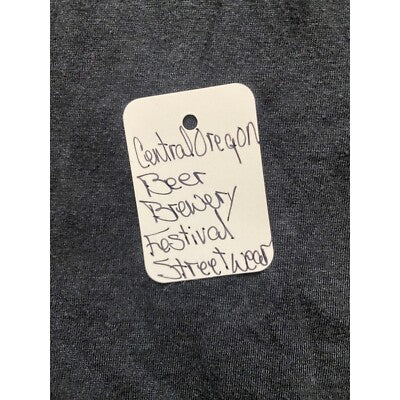 Central Oregon
Beer
Brewery
Festival
Street wear